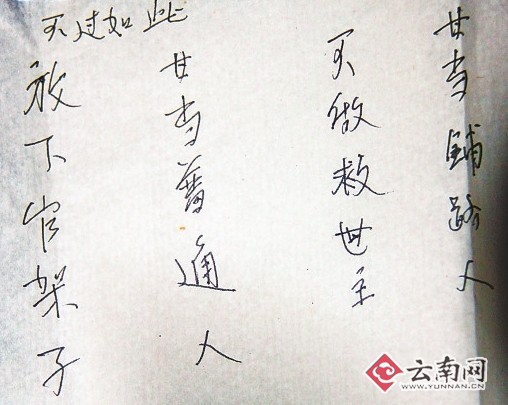 不过如此
放下官架子
甘当普通人
不做救世主
甘当铺路人
云南网
WWW.YUNNAN.CN